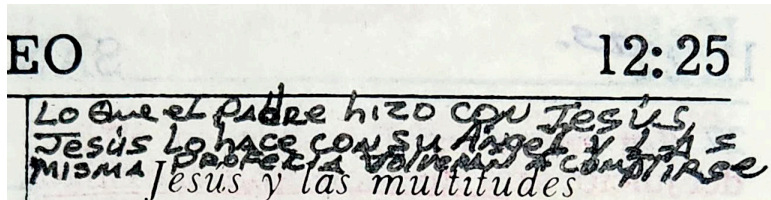 EO 12:25
Lo que el PADRE hizo CON Jesús,
Jesús Lo hace CON SU Ángel Y LAS
MISMA PROFECIA VOLVERAN A CUMPLIRSE
Jesús y las multitudes